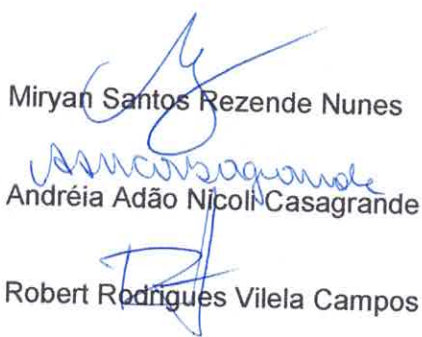 Miryan Santos Rezende Nunes
Andréia Adão Nicoli Casagrande
Robert Rodrigues Vilela Campos